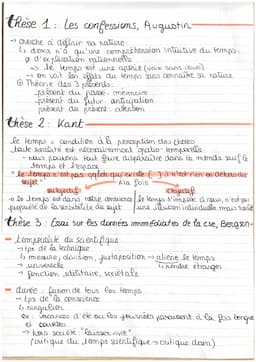 Thèse 1 : Les confessions, Augustin
→ cherche à définir sa nature
↳ doxa n'a qu'une compréhension intuitive du temps :
d'explication rationnelle
→ le temps est une opérée (voire sans jour)
→ on voit les effets du temps sans connaître sa nature
Théorie des 3 présents :
présent du passé : mémoire
présent du futur : anticipation
présent du présent : attention
Thèse 2 : Kant
le temps = condition à la perception des choses
toute réalité est nécessairement spatio-temporelle
→ nous pouvons tout faire disparaître dans le monde sauf le
temps et l'espace
→ le temps n'est pas qqch qui existe (3) à n'est rien en dehors du
sujet
à la fois
subjectif
objectif
→ le temps est dans notre conscience
propriété de la sensibilité du sujet
le temps s'impose à nous, n'est pas
une création individuelle mais totale
Thèse 3 : Essai sur les données immédiates de la cse, Bergson
- temporalité du scientifique
→ tps de la technique
↳ mesure, division, juxtaposition → aliène le temps
→ universelle
↳ rendre étranger
→ fonction utilitaire, sociétale
- durée : fusion de tous les temps
→ tps de la conscience
↳ singulier
ex : vacances d'été où les journées paraissent à la fois longues
et courtes
→ hors société : "laisser-vivre"
(critique du temps scientifique → critique desc)